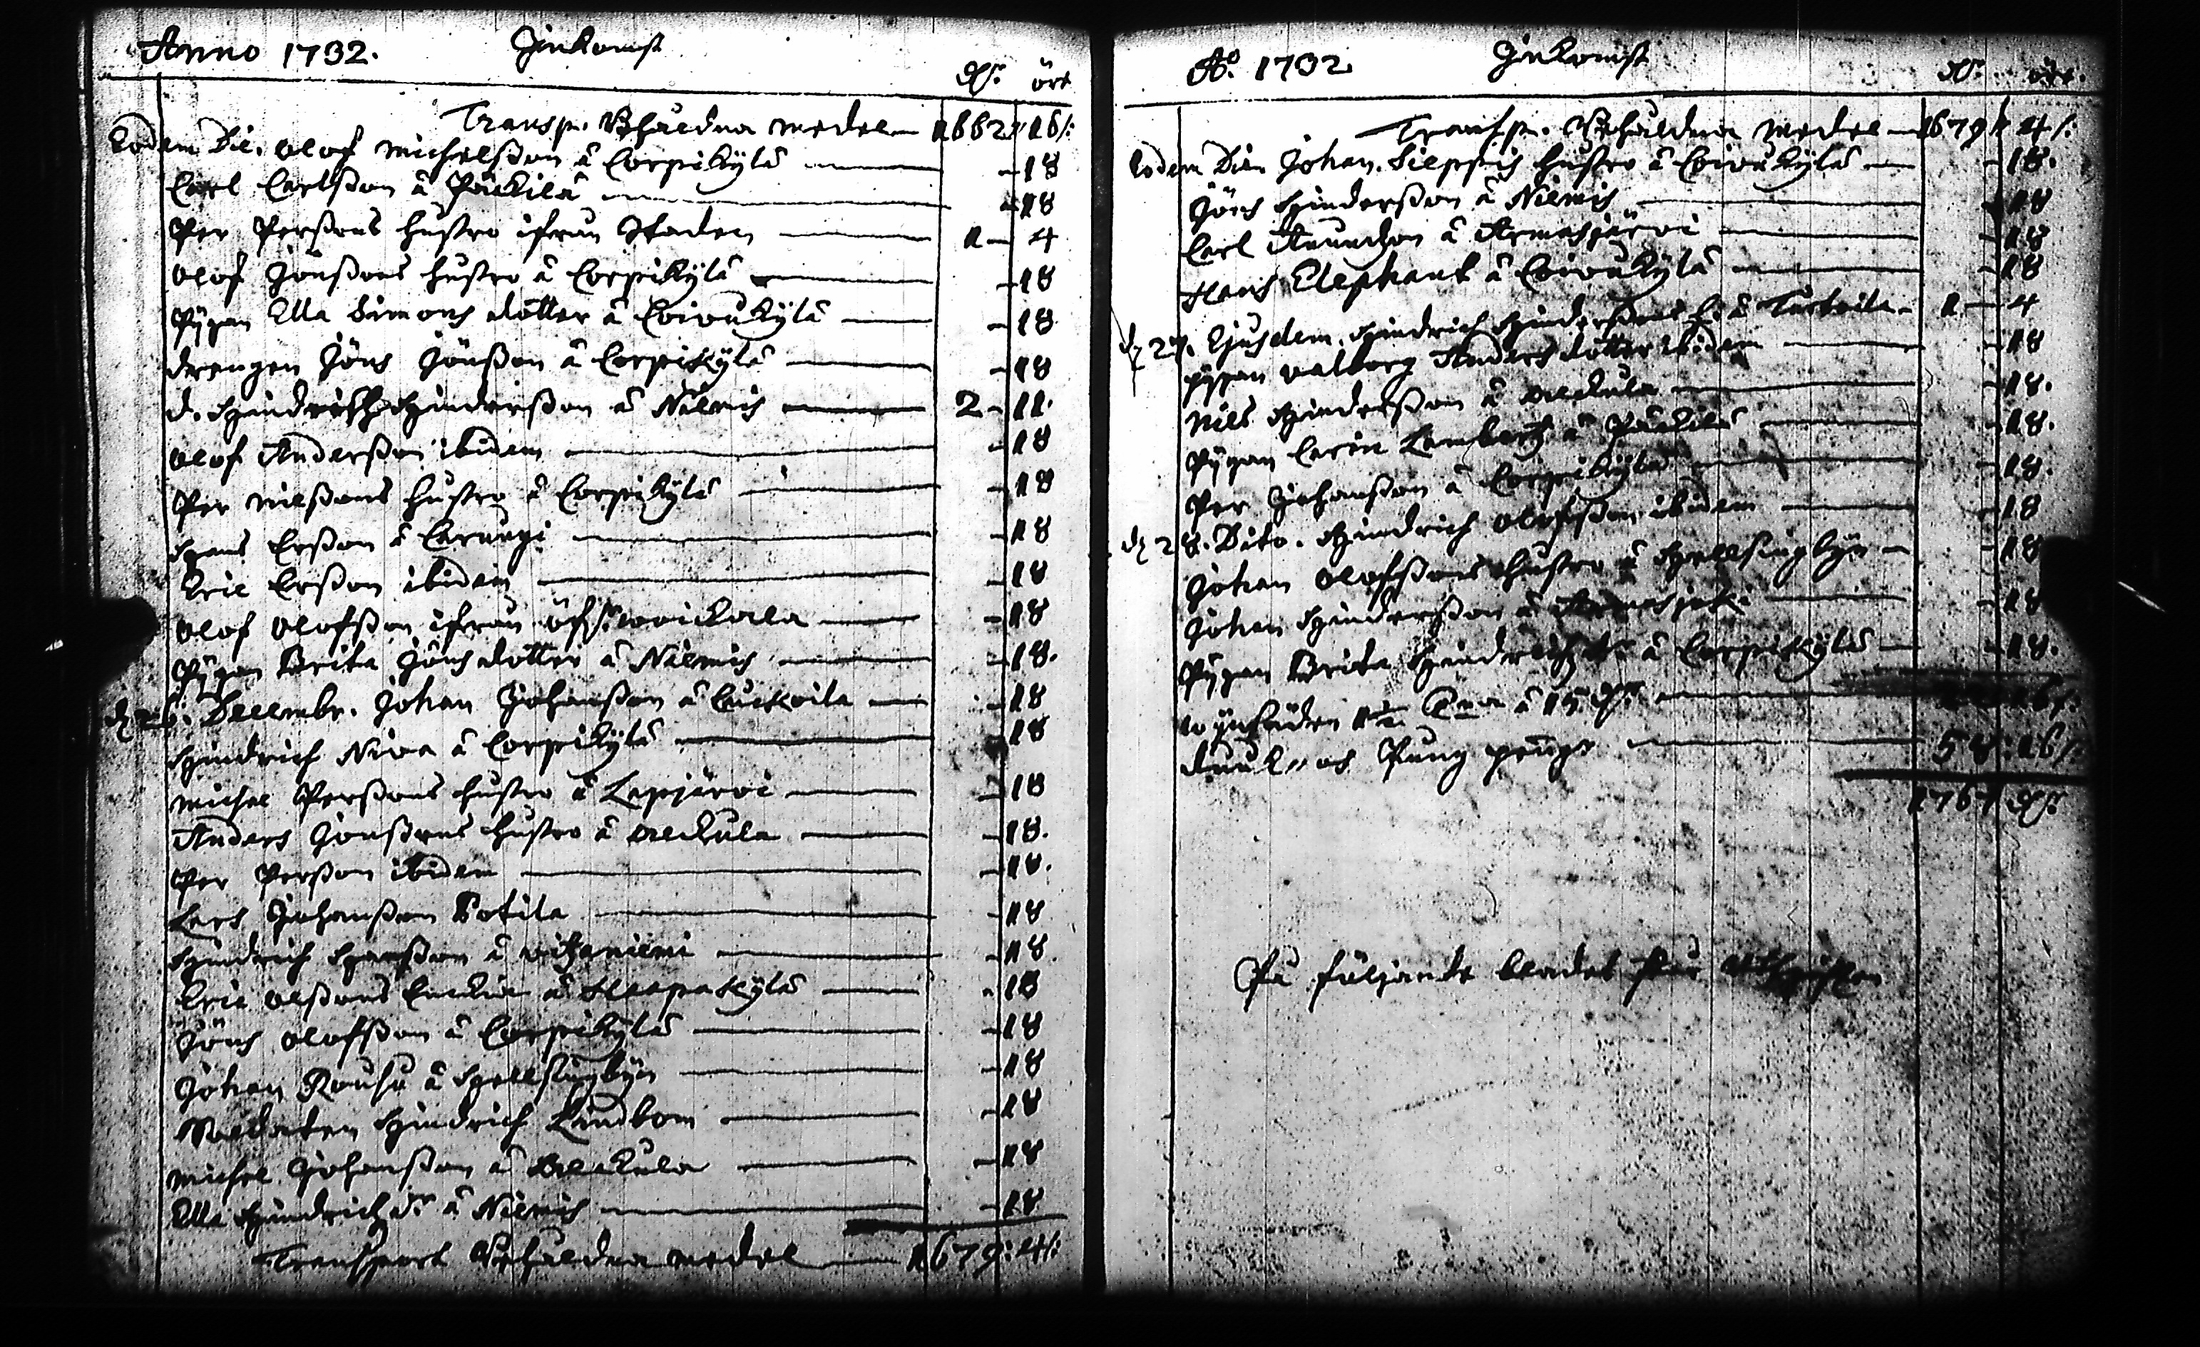 Anno 1732. Inkomst
dr. öre
Transp. Behåldna medel 1662 16/:
Eodem Die. Olof Michelsson å Corpikylä 18
Carl Carlsson å Päckilä 18
Per Perssons hustro ifrån Staden 1 4
Olof Jönssons hustro å Corpikylä 18
Pigan Ella Simons dotter å Coivukylä 18
Drengen Jöns Jönsson å Corpikylä 18
d. Hindrich Hindersson å Niemis 2 11.
Olof Andersson ibidem 18
Per Nilssons hustro å Corpikylä 18
Hans Ersson å Carungi 18
Eric Ersson ibidem 18
Olof Olofsson ifrån öfr. woickala 18
Pigan Brita Jöns dotter å Niemis 18.
d. 26. Decembr. Johan Johansson å Cuckoila 18
Hindrich Niva å Corpikylä 18
Michel Perssons hustro å Lapjärvi 18
Anders Jönssons hustro å Aleckula 18.
Per Persson ibidem 18.
Lars Johansson Potila 18
Hindrich Hansson å Vitzaniemi 18
Eric Olssons Enckia å Haapakylä 18
Jöns Olofsson å Corpikylä 18
Johan Rousu å Hellsingbyn 18
Soldaten Hindrich Lindbom 18
Michel Johansson å Aleckula 18
Ella Hindrichs dr. å Niemis 18
Transport Behåldna medel 1679: 4/:
Ao. 1732 Inkomst
dr. öre.
Transp. Behåldna medel 1679 4/:
Eodem Die Johan hustro å Coivukylä 18.
Jöns Hindersson å Niemis 18
Carl å Armasjärvi 18
Hans Elephant å Coivukylä 18
d. 27. Ejusdem. Hindrich Hinderssons h. å Turtola 1 4
Pigan Valborg Anders dotter ibidem 18
Nils Hindersson å Aleckula 18.
Pigan Carin Lamberts å Päckilä 18.
Per Johansson å Corpikylä 18.
d. 28. Dito. Hindrich Olofsson ibidem 18
Johan Olofssons hustro å Hellsingbyn 18
Johan Hindersson å 18
Pigan Brita Hindrichs dr. å Corpikylä 18.
å 15 dr.
och Pung peng. 58: 16/:
1767 dr.
På fäljande bladet står Utgiften